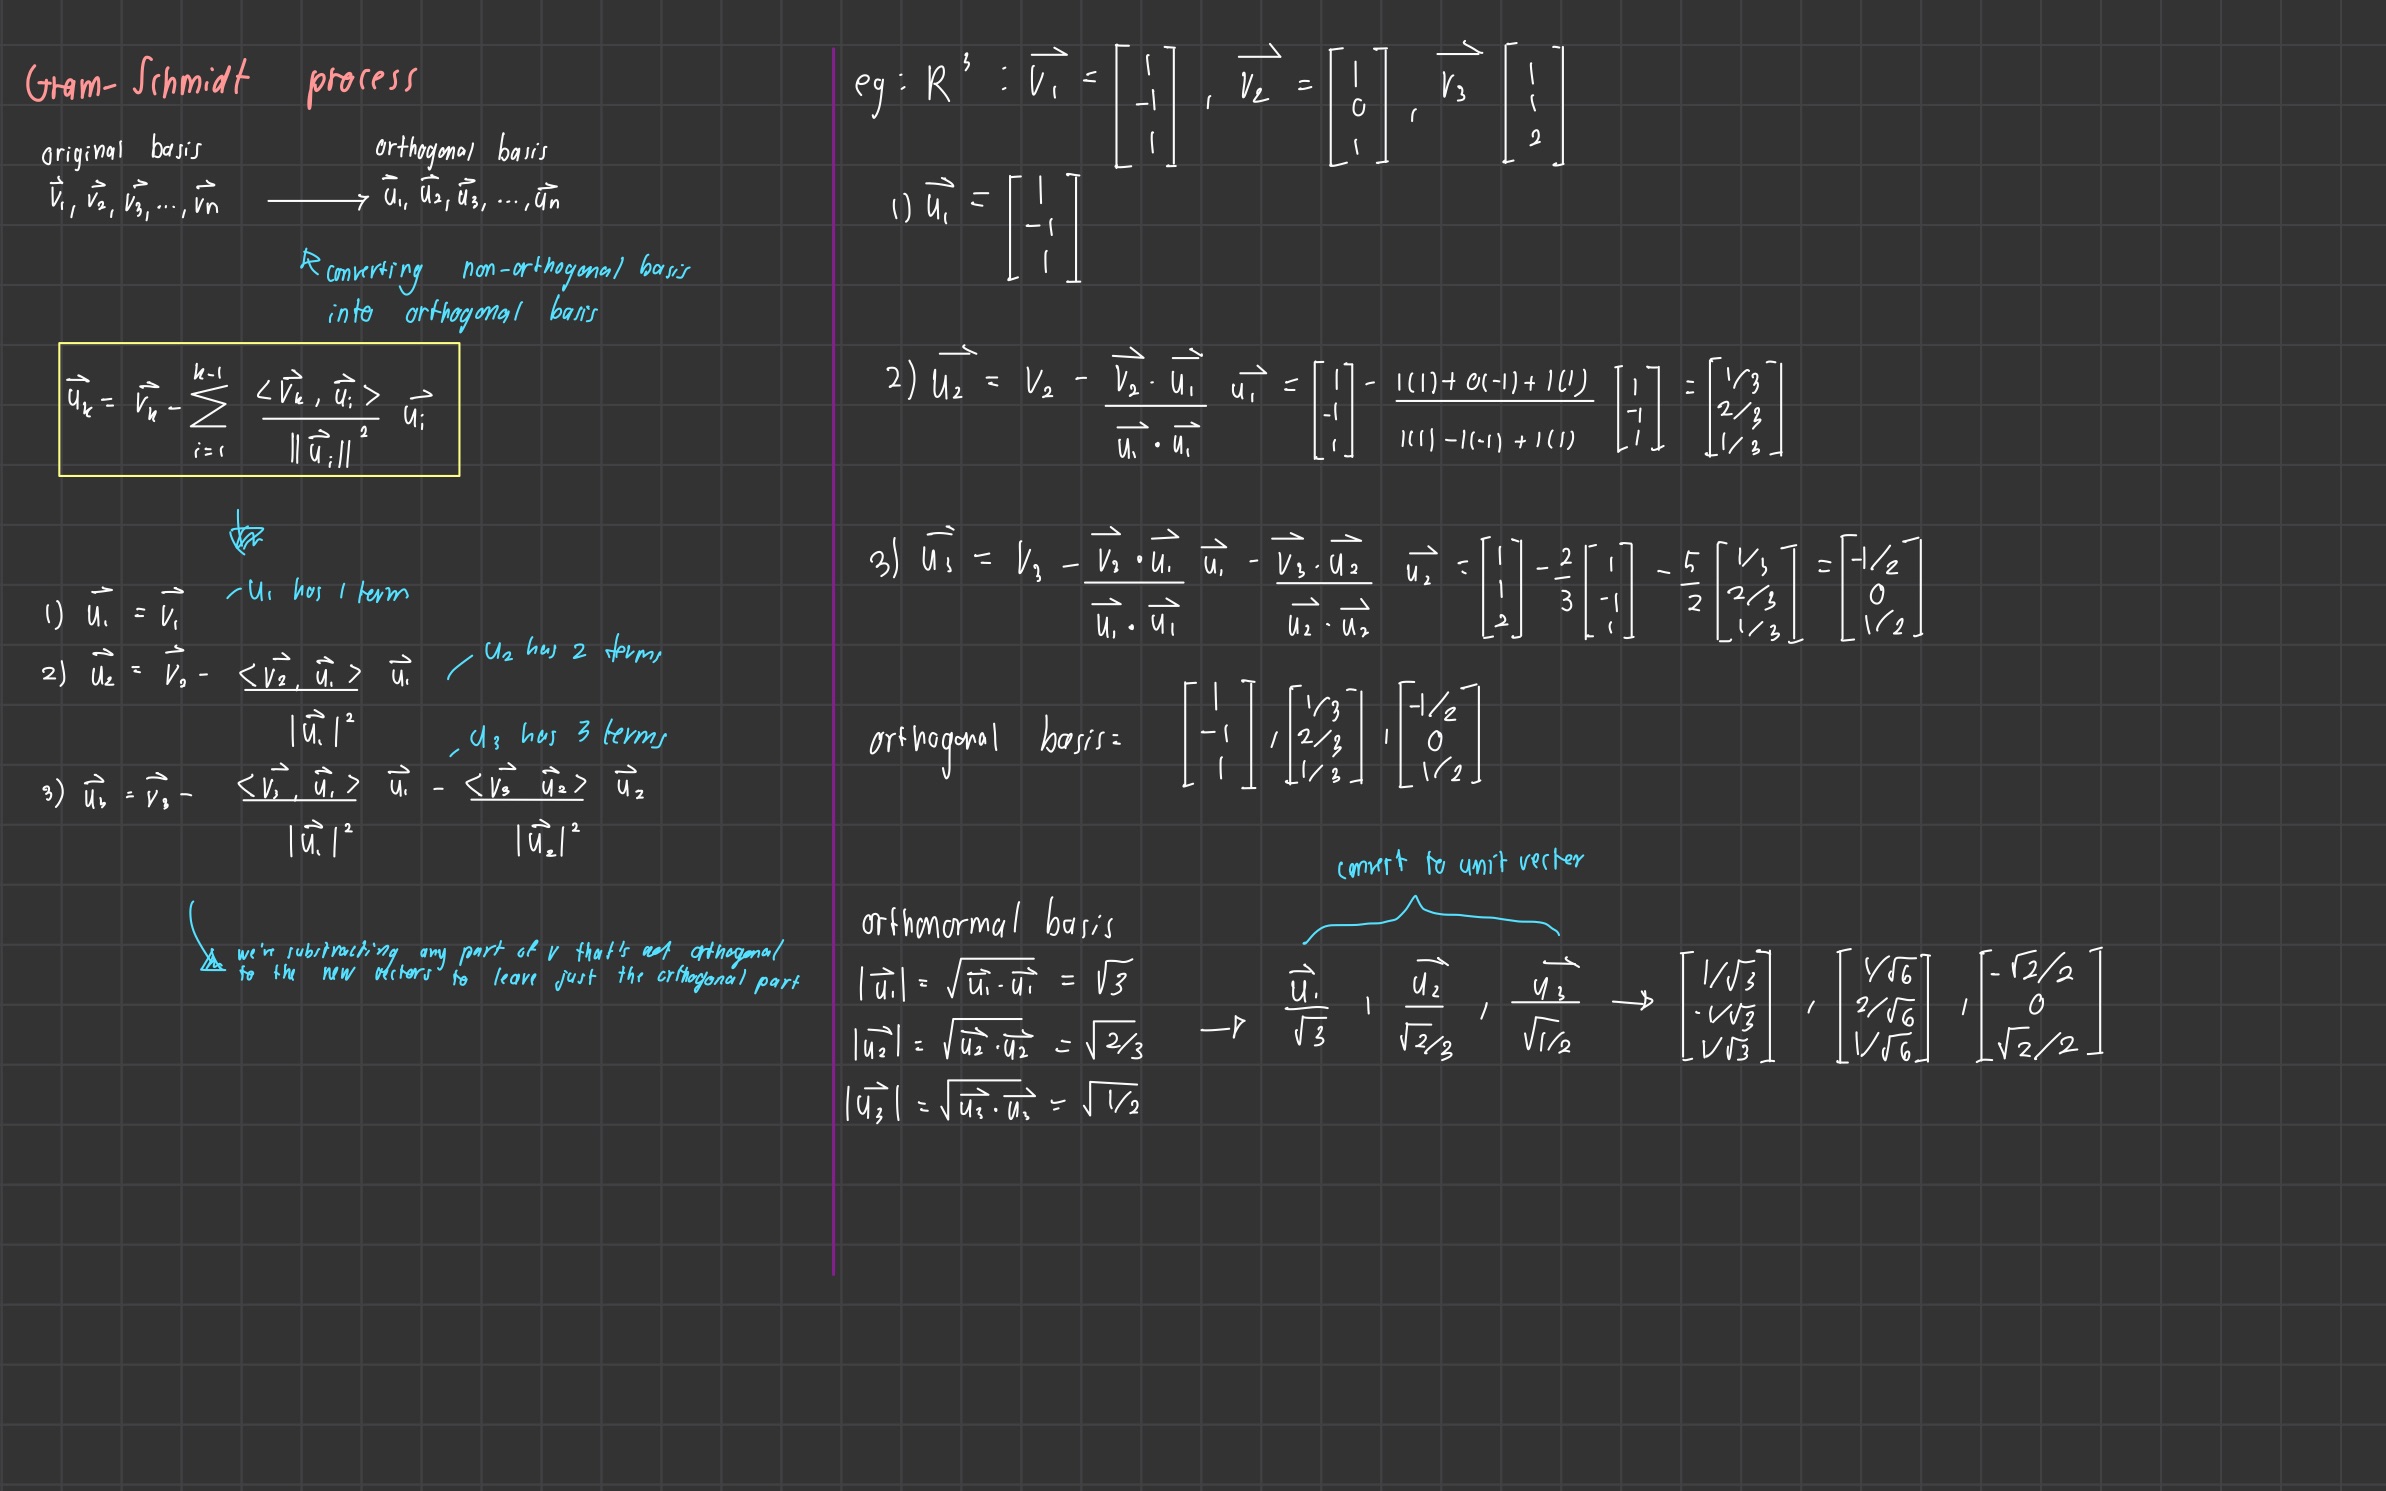 Gram-Schmidt process
original basis
v⃗₁, v⃗₂, v⃗₃, ..., v⃗n ⟶ orthogonal basis
u⃗₁, u⃗₂, u⃗₃, ..., u⃗n
converting non-orthogonal basis
into orthogonal basis
u⃗ₖ = v⃗ₖ - Σ_{i=1}^{k-1} <v⃗ₖ, u⃗ᵢ> / ||u⃗ᵢ||² u⃗ᵢ
1) u⃗₁ = v⃗₁
u₁ has 1 term
2) u⃗₂ = v⃗₂ - <v⃗₂, u⃗₁> / |u⃗₁|² u⃗₁
u₂ has 2 terms
3) u⃗₃ = v⃗₃ - <v⃗₃, u⃗₁> / |u⃗₁|² u⃗₁ - <v⃗₃ u⃗₂> / |u⃗₂|² u⃗₂
u₃ has 3 terms
we're substracting any part of v that's not orthogonal
to the new vectors to leave just the orthogonal part
eg: R³ : v⃗₁ = [1 -1 1], v⃗₂ = [1 0 1], v⃗₃ [1 1 2]
1) u⃗₁ = [1 -1 1]
2) u⃗₂ = v₂ - (v⃗₂ · u⃗₁) / (u⃗₁ · u⃗₁) u⃗₁ = [1 -1 1] - (1(1) + 0(-1) + 1(1)) / (1(1) - 1(-1) + 1(1)) [1 -1 1] = [1/3 2/3 1/3]
3) u⃗₃ = v₃ - (v⃗₃ · u⃗₁) / (u⃗₁ · u⃗₁) u⃗₁ - (v⃗₃ · u⃗₂) / (u⃗₂ · u⃗₂) u⃗₂ = [1 1 2] - 2/3 [1 -1 1] - 5/2 [1/3 2/3 1/3] = [-1/2 0 1/2]
orthogonal basis = [1 -1 1], [1/3 2/3 1/3], [-1/2 0 1/2]
convert to unit vector
orthonormal basis
|u⃗₁| = √(u⃗₁ · u⃗₁) = √3
|u⃗₂| = √(u⃗₂ · u⃗₂) = √(2/3)
|u⃗₃| = √(u⃗₃ · u⃗₃) = √(1/2)
→ u⃗₁/√3, u⃗₂/√2/3, u⃗₃/√1/2 → [1/√3 -1/√3 1/√3], [1/√6 2/√6 1/√6], [-√2/2 0 √2/2]